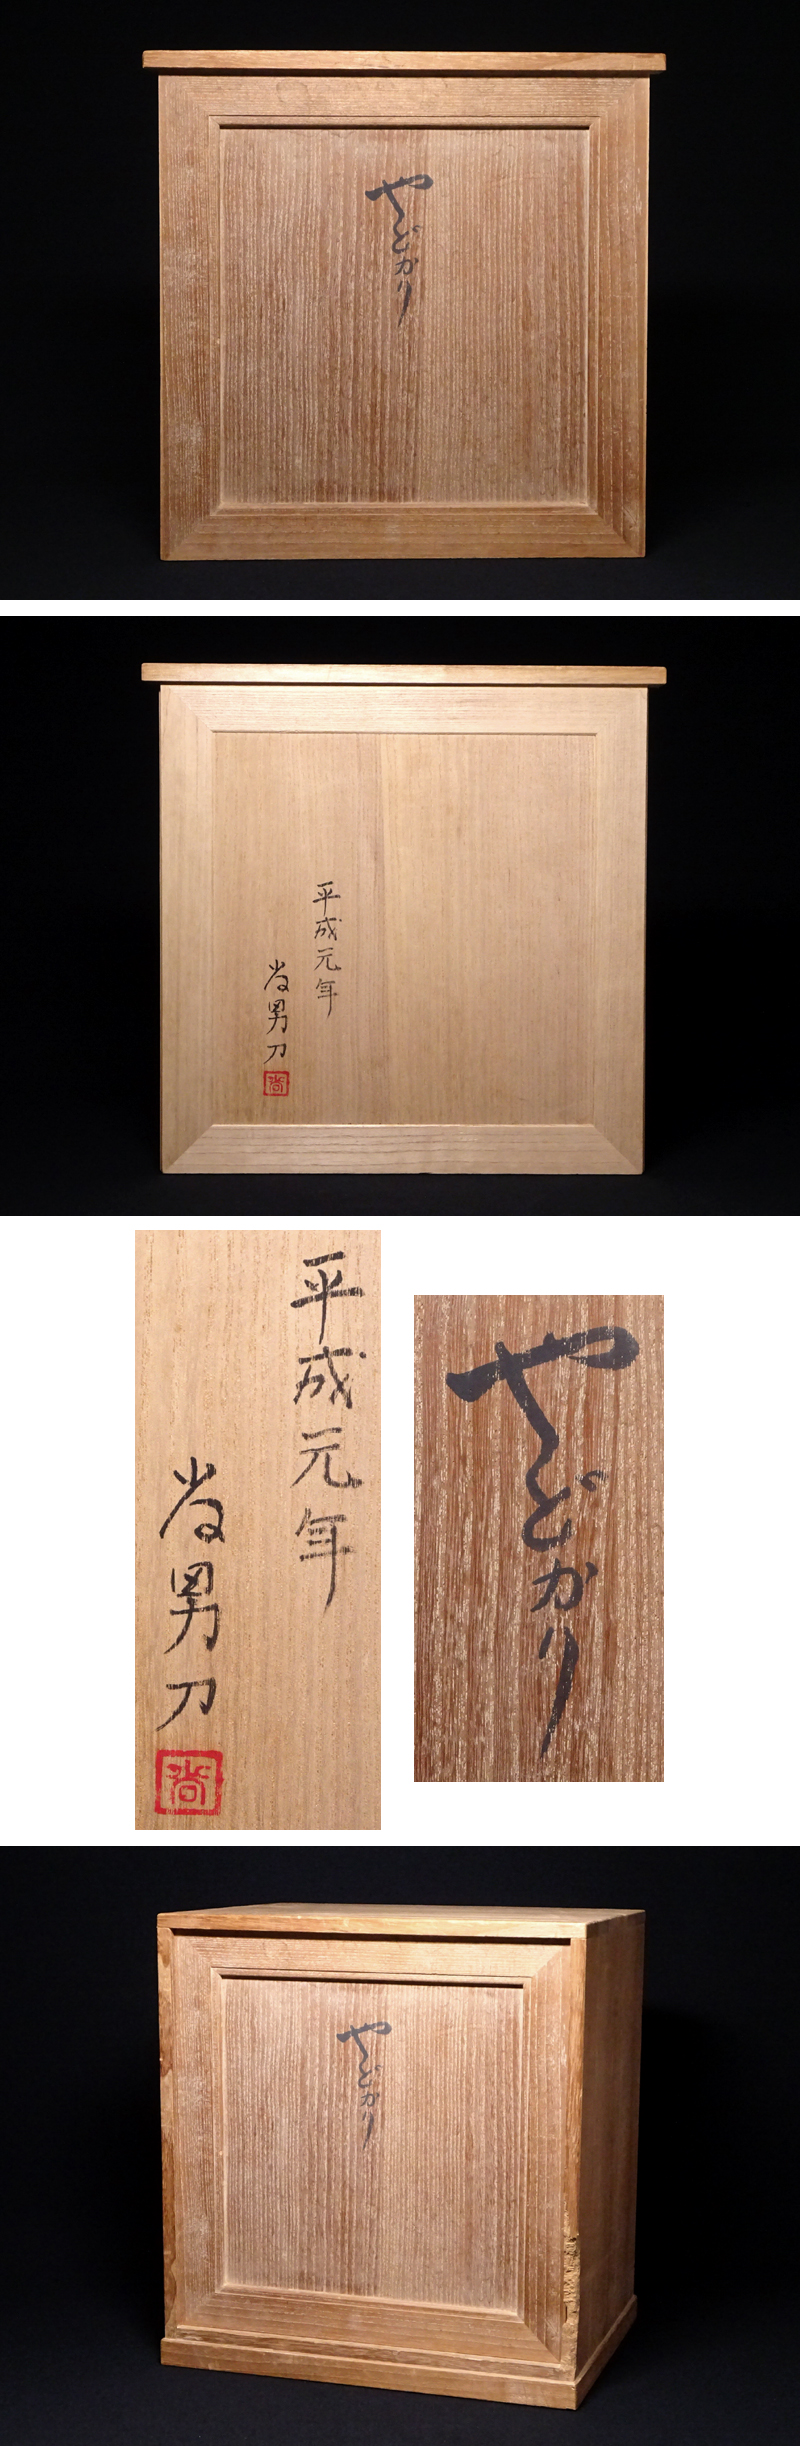 やどかり
平成元年
尚男刀
尚
平成元年
尚男刀
尚
やどかり
やどかり